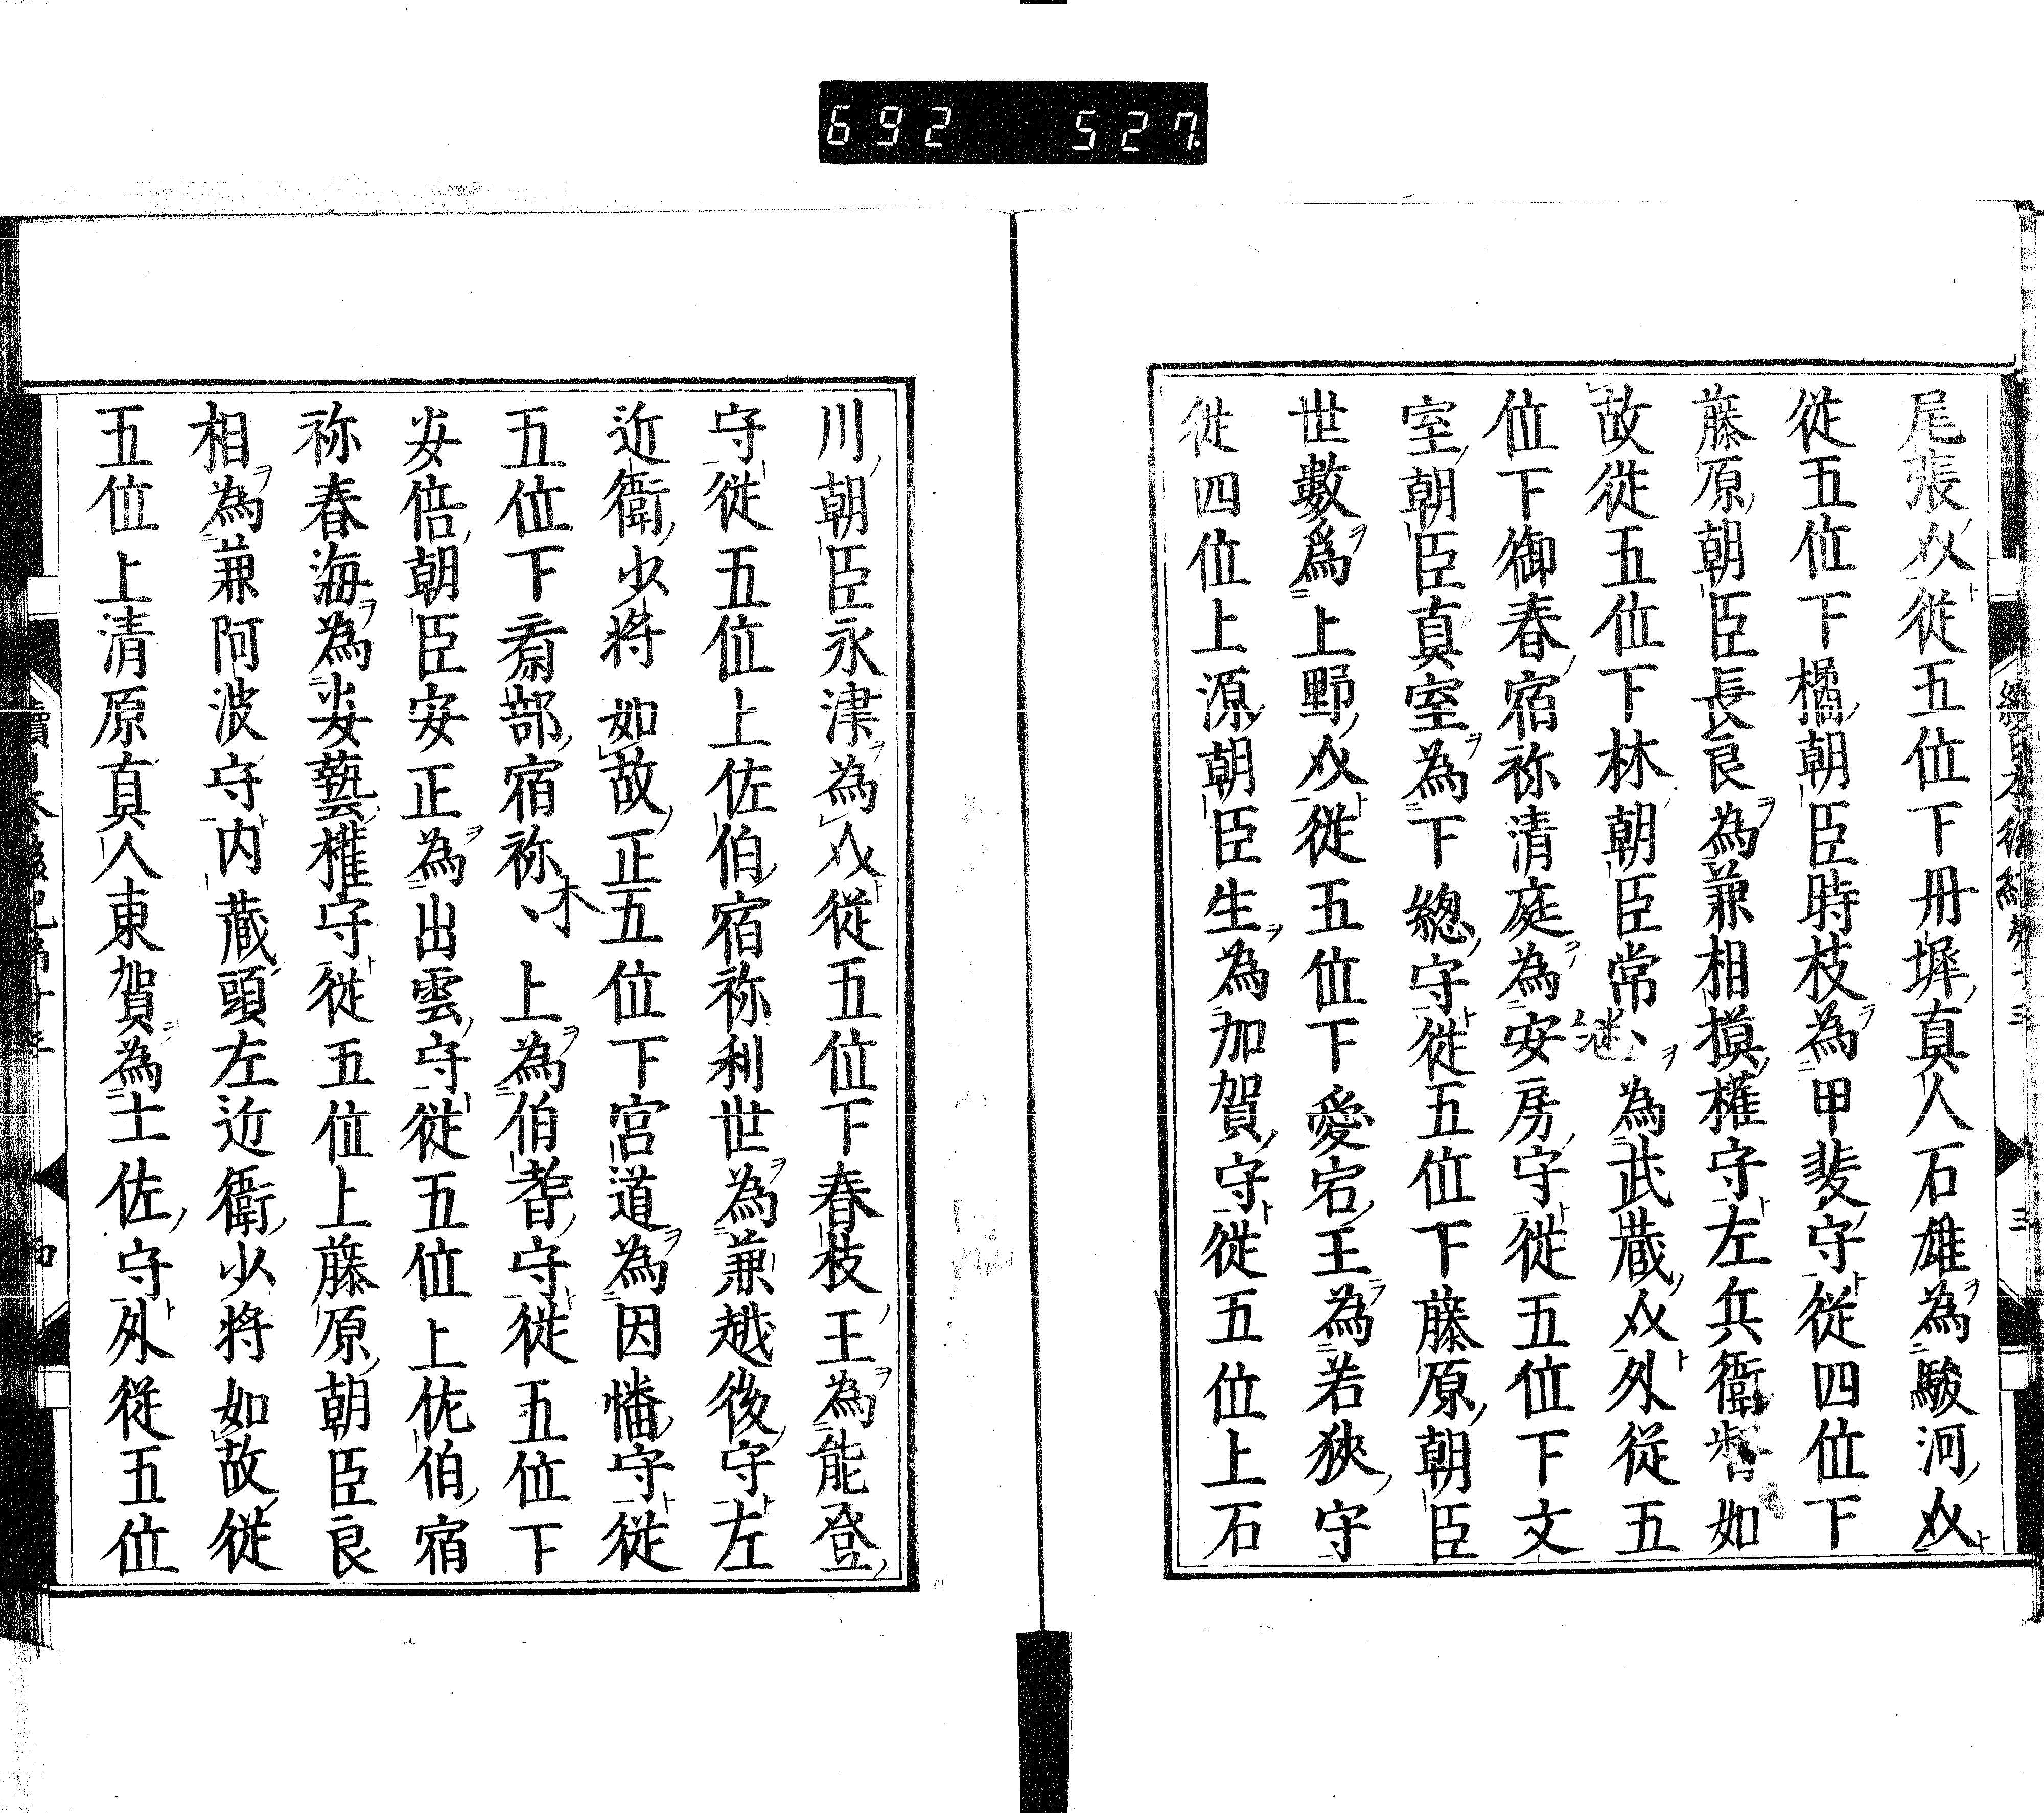 692 527
尾張介從五位下丹墀真人石雄為駿河介
從五位下橘朝臣時枝為甲斐守從四位下
藤原朝臣長良為兼相摸權守左兵衛督如
故從五位下林朝臣常継為武蔵介外從五
位下御春宿祢清庭為安房守從五位下文
室朝臣真室為下總守從五位下藤原朝臣
世數為上野介從五位下愛宕王為若狹守
從四位上源朝臣生為加賀守從五位上石
川朝臣永津為介從五位下春枝王為能登
守從五位上佐伯宿祢利世為兼越後守左
近衛少将如故正五位下宮道為因幡守從
五位下斎部宿祢木上為伯耆守從五位下
安倍朝臣安正為出雲守從五位上佐伯宿
祢春海為安藝權守從五位上藤原朝臣良
相為兼阿波守内蔵頭左近衛少将如故從
五位上清原真人東賀為土佐守外從五位